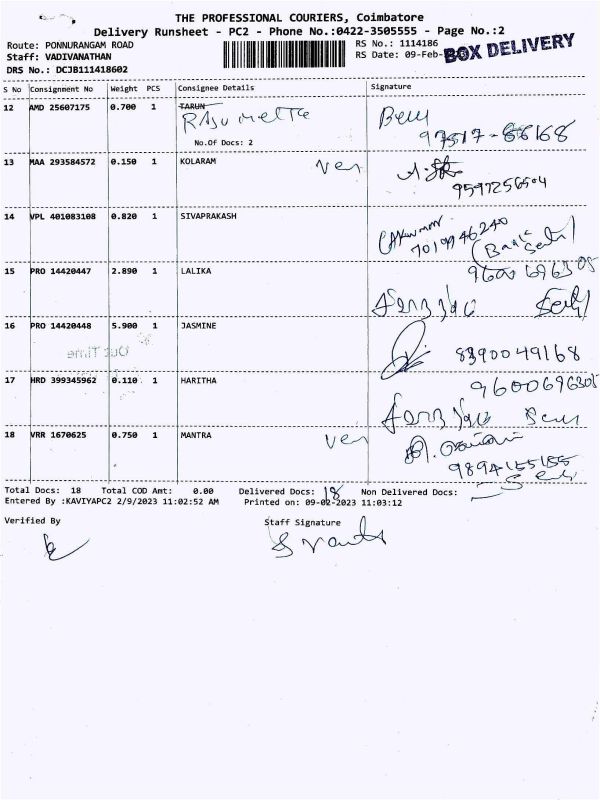 THE PROFESSIONAL COURIERS, Coimbatore
Delivery Runsheet - PC2 - Phone No.:0422-3505555 - Page No.:2
Route: PONNURANGAM ROAD
RS No.: 1114186
Staff: VADIVANATHAN
RS Date: 09-Feb-
BOX DELIVERY
DRS No.: DCJB111418602
S No Consignment No Weight PCS Consignee Details Signature
12 AMD 25607175 0.700 1 TARUN
No.Of Docs: 2
13 MAA 293584572 0.150 1 KOLARAM
9597256504
14 VPL 401083108 0.820 1 SIVAPRAKASH
15 PRO 14420447 2.890 1 LALIKA
16 PRO 14420448 5.900 1 JASMINE
8390049168
Out Time
17 HRD 399345962 0.110 1 HARITHA
9600696305
18 VRR 1670625 0.750 1 MANTRA
Total Docs: 18 Total COD Amt: 0.00 Delivered Docs: 18 Non Delivered Docs:
Entered By :KAVIYAPC2 2/9/2023 11:02:52 AM Printed on: 09-02-2023 11:03:12
Verified By Staff Signature